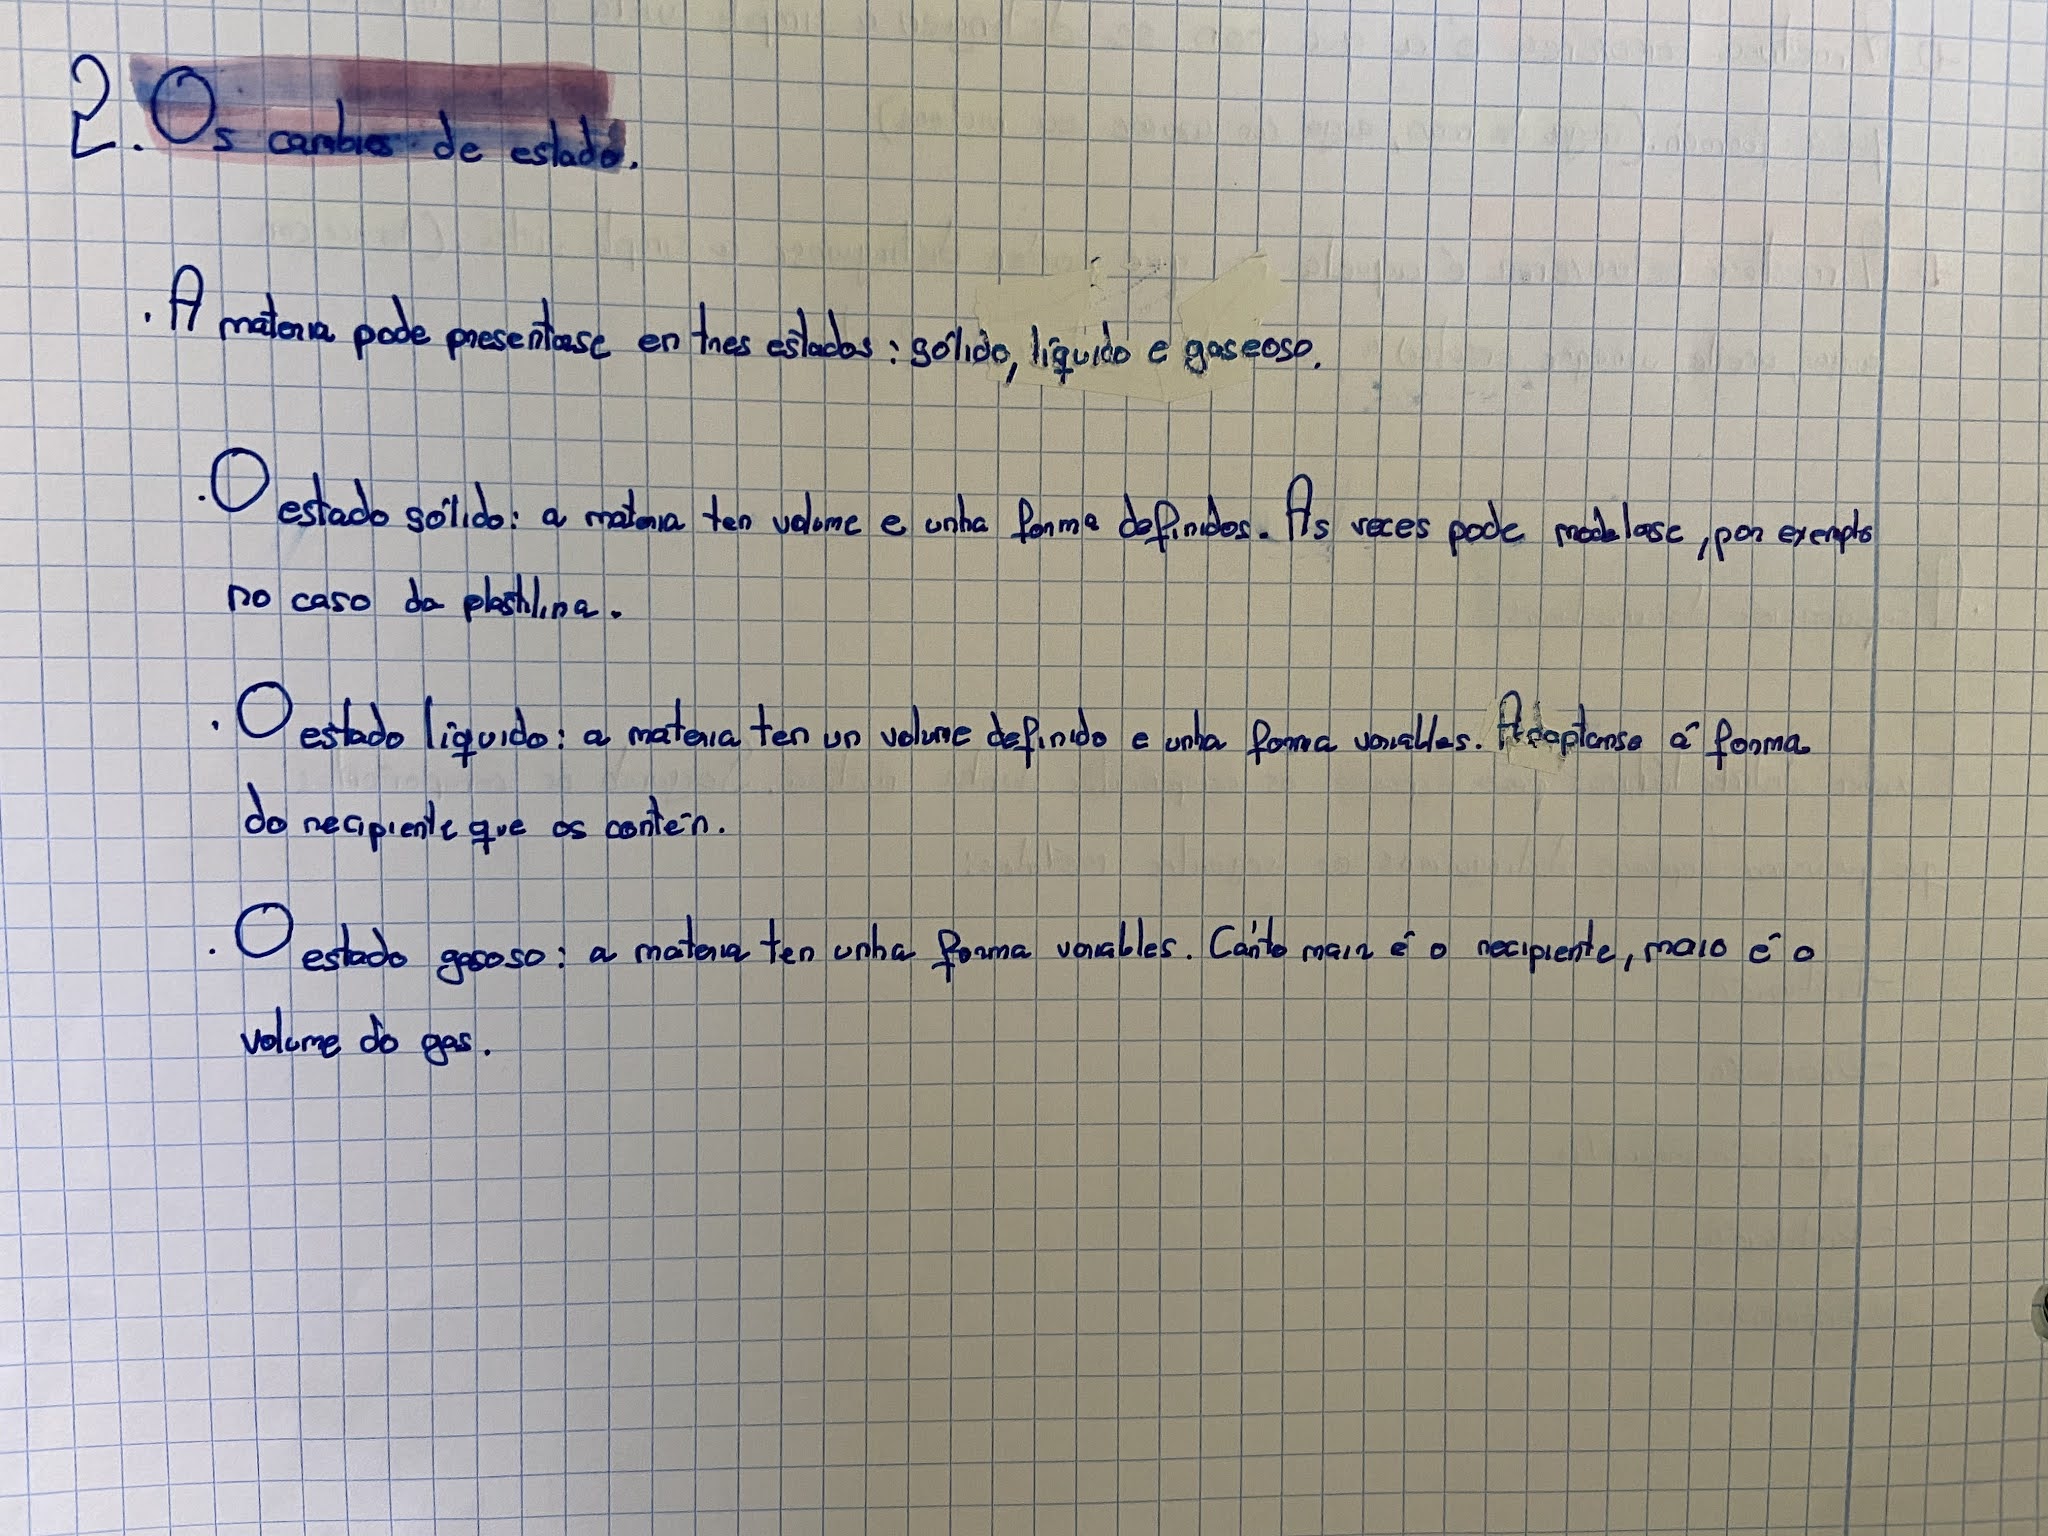 2. Os cambios de estado.
. A materia pode presentase en tres estados: sólido, líquido e gaseoso.
. O estado sólido: a materia ten volume e unha forma definidos. As veces pode modelase, por exemplo
no caso da plastilina.
. O estado líquido: a materia ten un volume definido e unha forma variables. Adaptanse á forma
do recipiente que os contén.
. O estado gasoso: a materia ten unha forma variables. Canto mair é o recipiente, maio é o
volume do gas.